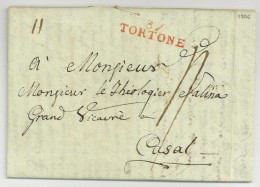 11
31
TORTONE
à Monsieur
Monsieur le Théologier Salina
Grand Vicaire
Casal